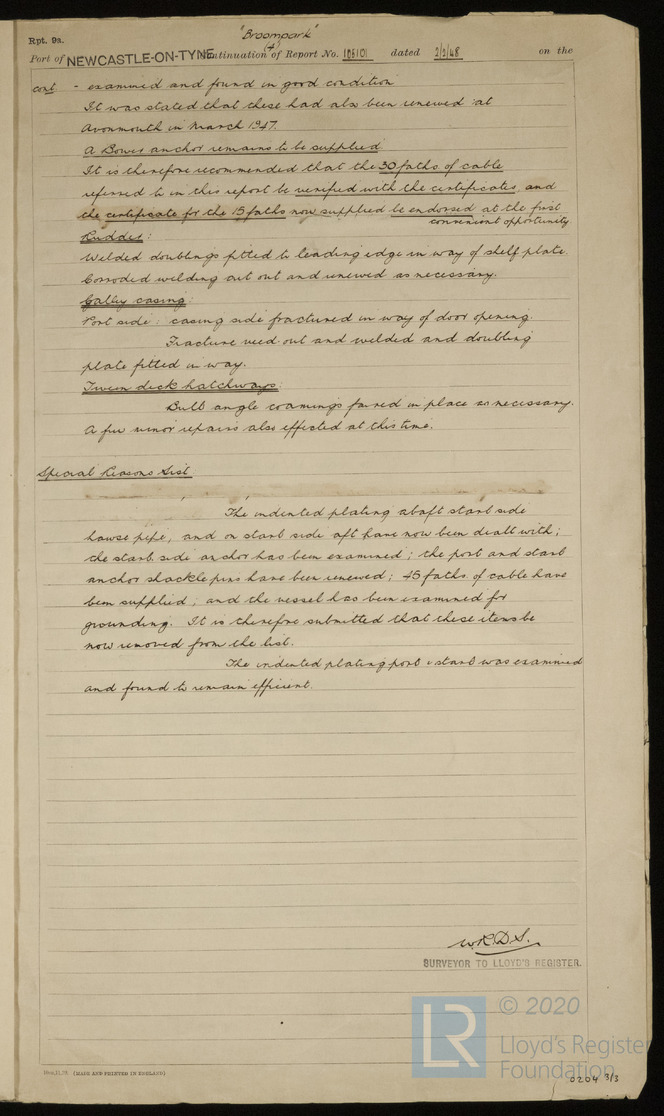 "Broompark"
(4)
Rpt. 9a.
Port of NEWCASTLE-ON-TYNE Continuation of Report No. 105101 dated 2/2/48 on the
cont - examined and found in good condition
It was stated that these had also been renewed at
Avonmouth in March 1947.
A Bower anchor remains to be supplied
It is therefore recommended that the 30 faths of cable
referred to in this report be verified with the certificates, and
the certificate for the 15 faths now supplied be endorsed at the first
convenient opportunity
Rudder:
Welded doublings fitted to leading edge in way of shelf plate.
Corroded welding cut out and renewed as necessary.
Galley casing:
Port side: casing side fractured in way of door opening.
Fracture veed out and welded and doubling
plate fitted in way.
Tween deck hatchways:
Bulb angle coamings faired in place as necessary.
A few minor repairs also effected at this time.
Special Reasons List
The indented plating abaft starb side
hawse pipe, and on starb side aft have now been dealt with;
the starb. side anchor has been examined; the port and starb
anchor shackle pins have been renewed; 45 faths. of cable have
been supplied; and the vessel has been examined for
grounding. It is therefore submitted that these items be
now removed from the list.
The indented plating port & starb was examined
and found to remain efficient.
W.R.D.S.
SURVEYOR TO LLOYD'S REGISTER.
© 2020
LR
Lloyd's Register
Foundation
(MADE AND PRINTED IN ENGLAND)
0204 3/3